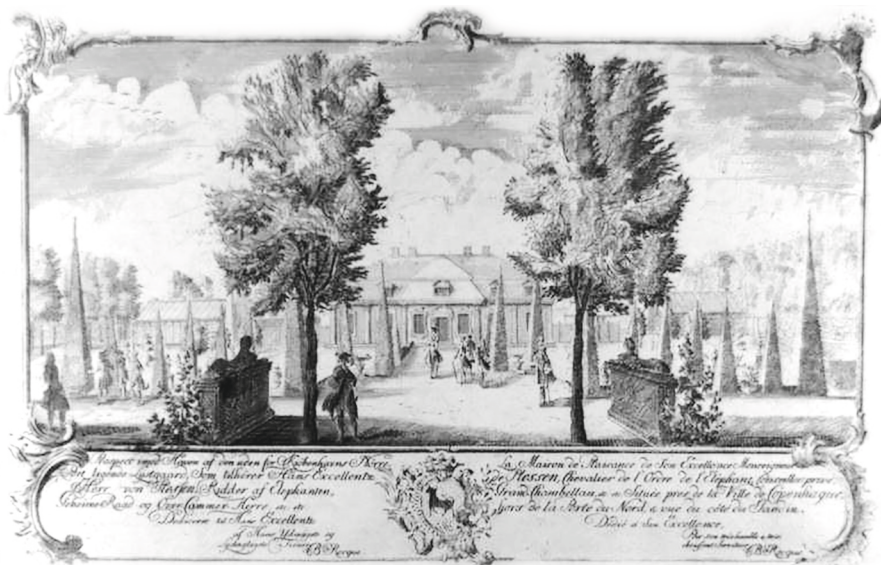 Prospect imod Haven af den uden for Kiøbenhavns Nørre
Port liggende Lystgaard, Som tilhører Hans Excellentz
Herr von Plessen, Ridder af Elephanten,
Geheime Raad og Over Cammer Herre &c &c
Dediceret til Hans Excellentz
af Hans
Tienere
La Maison de Plaisance de Son Excellence Monseigneur
de Plessen, Chevalier de l'Ordre de l'Elephant, Conseiller privé,
Grand Chambellan, &c Située pres de la Ville de Copenhague,
hors de la Porte du Nord, & vue du côté du Jardin.
Dedié à Son Excellence,
Par son très humble & très